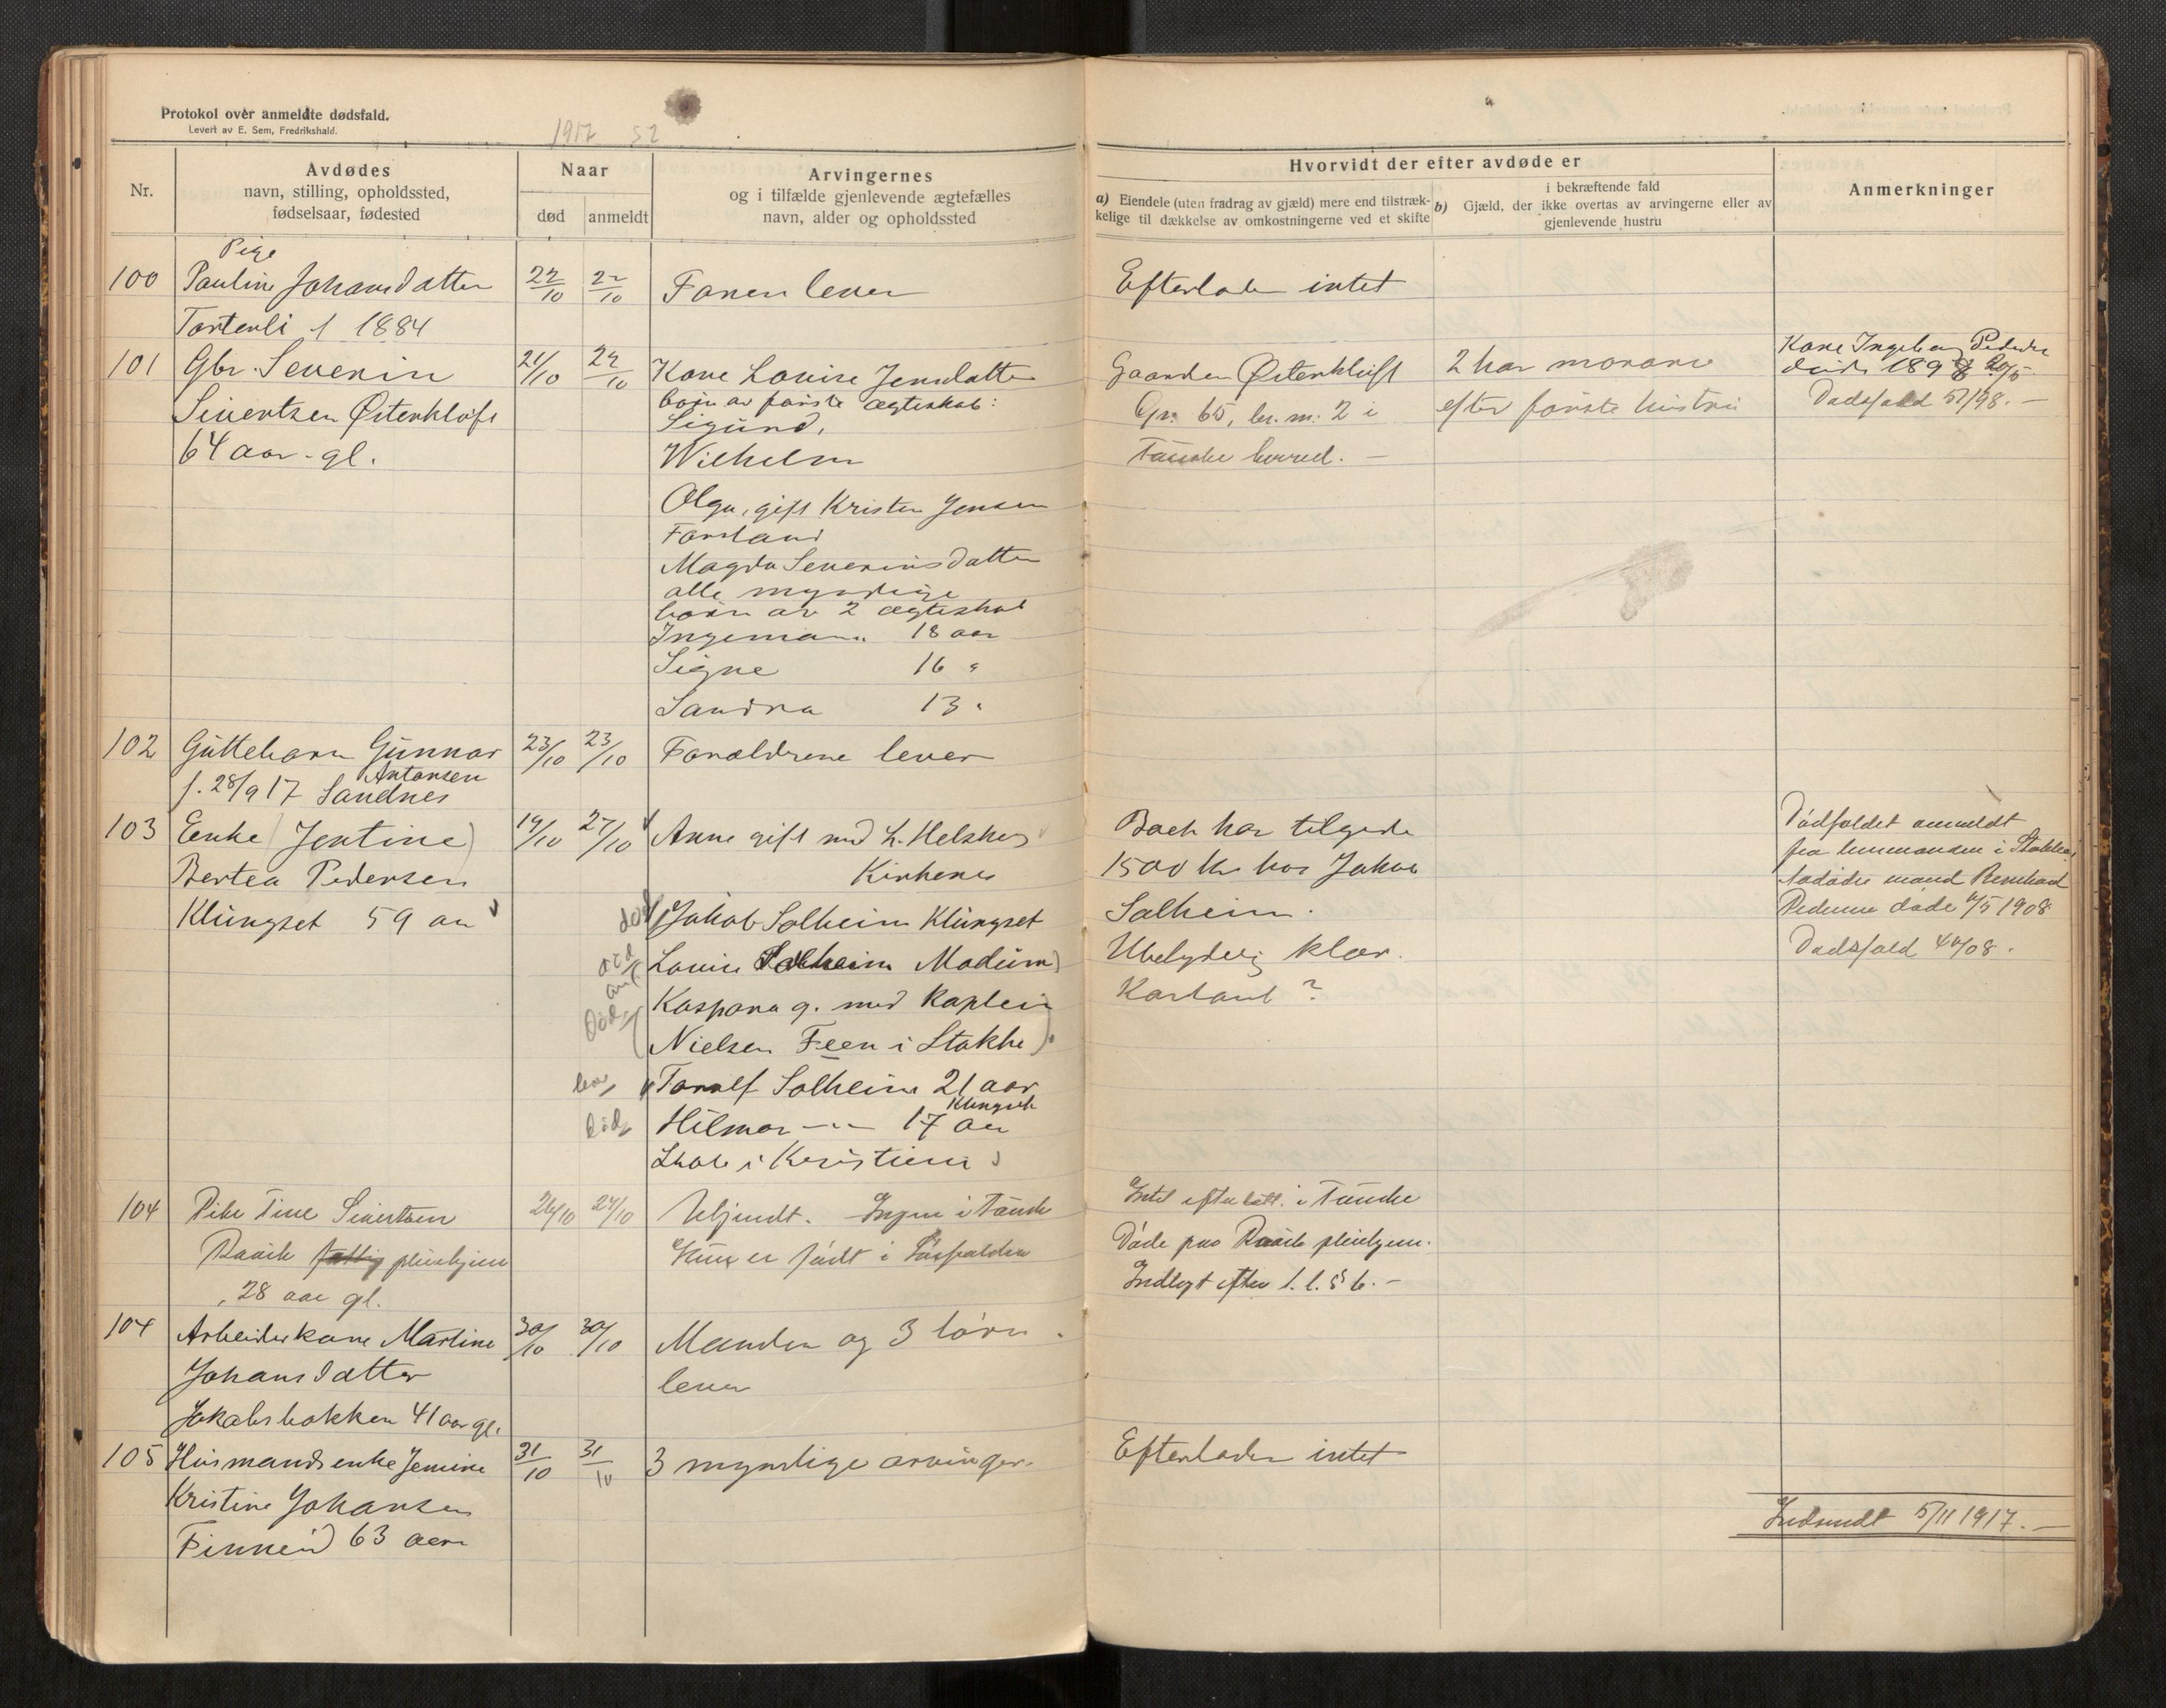 Protokol over anmeldte dødsfald.
Levert av E. Sem, Fredrikshald.
1917 52
Nr.
Avdødes
navn, stilling, opholdssted,
fødselsaar, fødested
Naar
død
anmeldt
Arvingernes
og i tilfælde gjenlevende ægtefælles
navn, alder og opholdssted
Hvorvidt der efter avdøde er
a) Eiendele (uten fradrag av gjæld) mere end tilstræk-
kelige til dækkelse av omkostningerne ved et skifte
i bekræftende fald
b) Gjæld, der ikke overtas av arvingerne eller av
gjenlevende hustru
Anmerkninger
Pige
100 Pauline Johansdatter 22/10 22/10 Faren lever Efterlader intet
Tortenli f 1884
101 Gbr. Severin 21/10 22/10 Kone Lovise Jensdatter Gaarden Østerkløft 2 har morarv Kone Ingeborg Pedersdr
Sivertsen Østerkløft børn av første ægteskab: Gr. 65, br. nr. 2 i efter første hustru døde 1898 20/5
64 aar gl. Sigurd, Fauske herred. — Dødsfald 57/98. —
Wilhelm
Olga, gift Kristen Jensen
Farsland
Magda Severinsdatter
alle myndige
børn av 2 ægteskab
Ingemann 18 aar
Signe 16 "
Sandra 13 "
102 Guttebarn Gunnar 23/10 23/10 Forældrene lever
Antonsen
f. 28/9 17 Sandnes
103 Enke (Jentine) 19/10 27/10 Anne gift med L. Helskog Boet har tilgode Dødsfaldet anmeldt
Bertea Pedersen Kirkenes 1500 kr hos Jakob fra lensmanden i Stokke
Klungset 59 aar død Jakob Solheim Klungset Solheim. Avdødes mand Bernhard
Lovise Solheim Modum) Ubetydelig klær. Pedersen døde /5 1908
Kaspara g. med Kaptein Kontant? Dødsfald 40/08.
død
Nielsen Feen i Stokke)
lev, Toralf Solheim 21 aar
Klungset
død Hilmar —"— 17 aar
Skole i Kristiania
104 Pike Tine Sivertsen 26/10 27/10 Ubejendt. Ingen i Fauske Intet efterlatt i Fauske
Røsvik fattig pleiehjem Hun er født i Sørfolden Døde paa Røsvik pleiehjem.
28 aar gl. Indlagt efter l. l. § 6. —
104 Arbeiderkone Martine 30/10 30/10 Manden og 3 børn
Johansdatter lever
Jakobsbakken 41 aar gl.
105 Husmandsenke Jemine 31/10 31/10 3 myndige arvinger. Efterlader intet
Kristine Johansen
Finneid 63 aar
Indsendt 5/11 1917. —